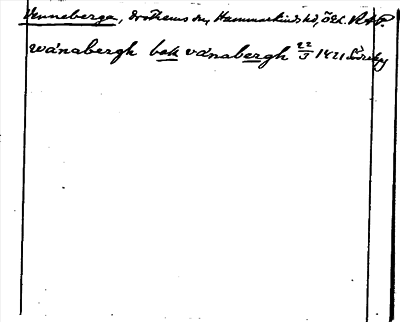 Venneberga, Drothems sn, Hammarkinds hd, Ögl.
wanabergh bek vanabergh 22/5 1421 Söderby